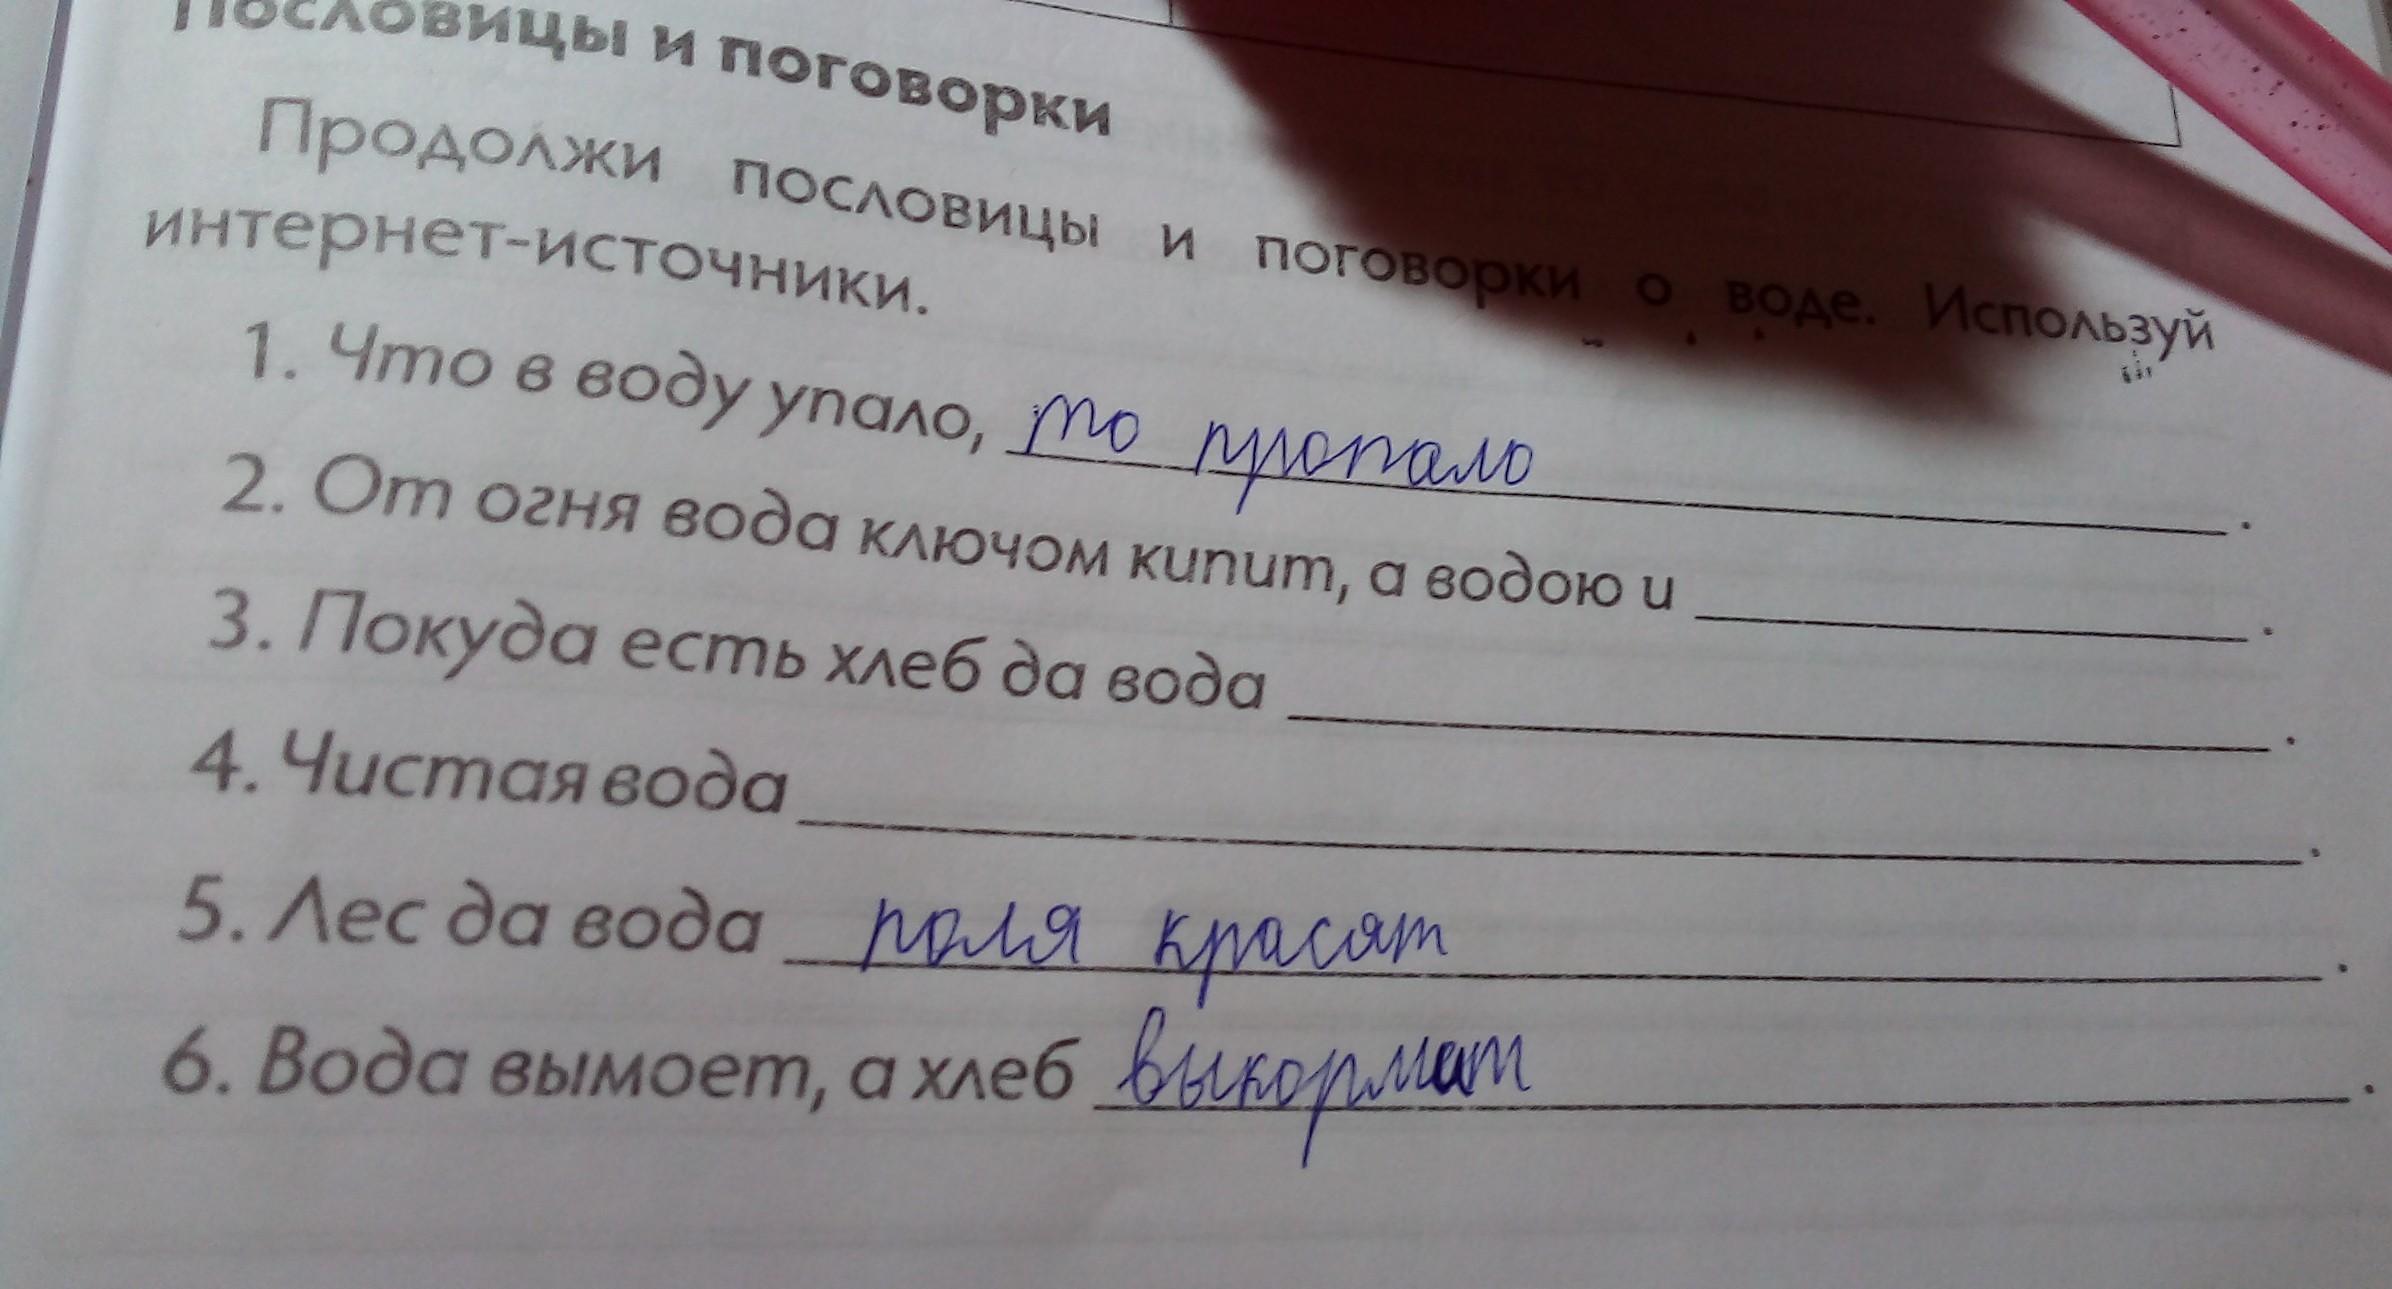 Пословицы и поговорки
Продолжи пословицы и поговорки о воде. Используй
интернет-источники.
1. Что в воду упало, то пропало.
2. От огня вода ключом кипит, а водою и ____.
3. Покуда есть хлеб да вода ____.
4. Чистая вода ____.
5. Лес да вода поля красят.
6. Вода вымоет, а хлеб выкормит.